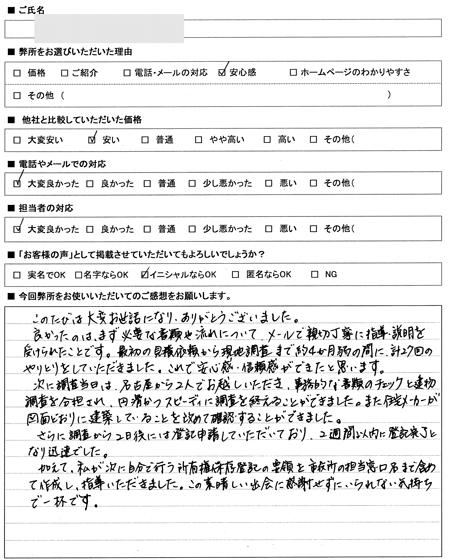 ■ ご氏名
■ 弊所をお選びいただいた理由
□ 価格 □ご紹介 □ 電話・メールの対応 ☑ 安心感 □ ホームページのわかりやすさ
□ その他 ( )
■ 他社と比較していただいた価格
□ 大変安い ☑ 安い □ 普通 □ やや高い □ 高い □ その他(
■ 電話やメールでの対応
☑ 大変良かった □ 良かった □ 普通 □ 少し悪かった □ 悪い □ その他(
■ 担当者の対応
☑ 大変良かった □ 良かった □ 普通 □ 少し悪かった □ 悪い □ その他(
■ 「お客様の声」として掲載させていただいてもよろしいでしょうか?
□ 実名でOK □名字ならOK ☑イニシャルならOK □ 匿名ならOK □ NG
■ 今回弊所をお使いいただいてのご感想をお願いします。
このたびは大変お世話になり、ありがとうございました。
良かったのは、まず必要な書類や流れについて、メールで親切丁寧に指導・説明を
受けられたことです。最初の見積依頼から現地調査まで約4か月弱の間に、計27回の
やりとりをしていただきました。これで安心感・信頼感ができたと思います。
次に調査当日は、名古屋から2人でお越しいただき、事務的な書類のチェックと建物
調査を分担され、円滑かつスピーディに調査を終えることができました。また住宅メーカーが
図面どおりに建築していることを改めて確認することができました。
さらに調査から2日後には登記申請していただいており、2週間以内に登記完了と
なり迅速でした。
加えて、私が次に自分で行う所有権保存登記の書類を市役所の担当窓口名まで含め
て作成し、指導いただきました。この素晴しい出会に感謝せずにいられない気持ち
で一杯です。